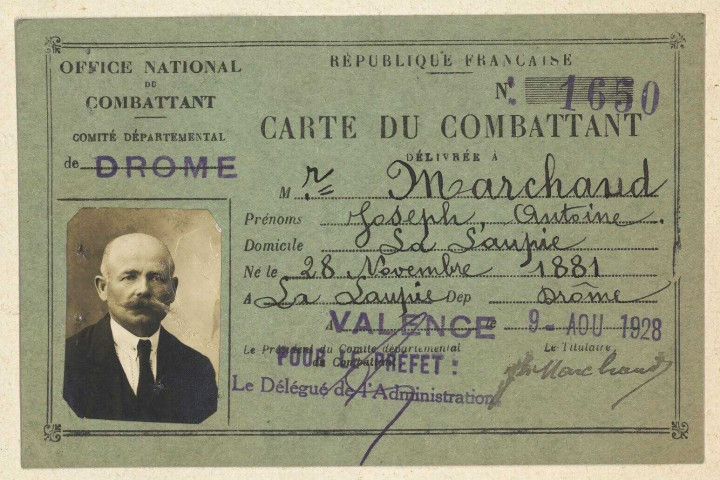 OFFICE NATIONAL
DU
COMBATTANT
COMITÉ DÉPARTEMENTAL
de DROME
RÉPUBLIQUE FRANÇAISE
N° 1650
CARTE DU COMBATTANT
DÉLIVRÉE À
Mr Marchand
Prénoms Joseph, Antoine.
Domicile La Laupie
Né le 28 Novembre 1881
A La Laupie Dép Drôme
A VALENCE le 9 - AOU 1928
Le Président du Comité départemental
du Combattant
Le Titulaire,
POUR LE PREFET :
Le Délégué de l'Administration
Marchand